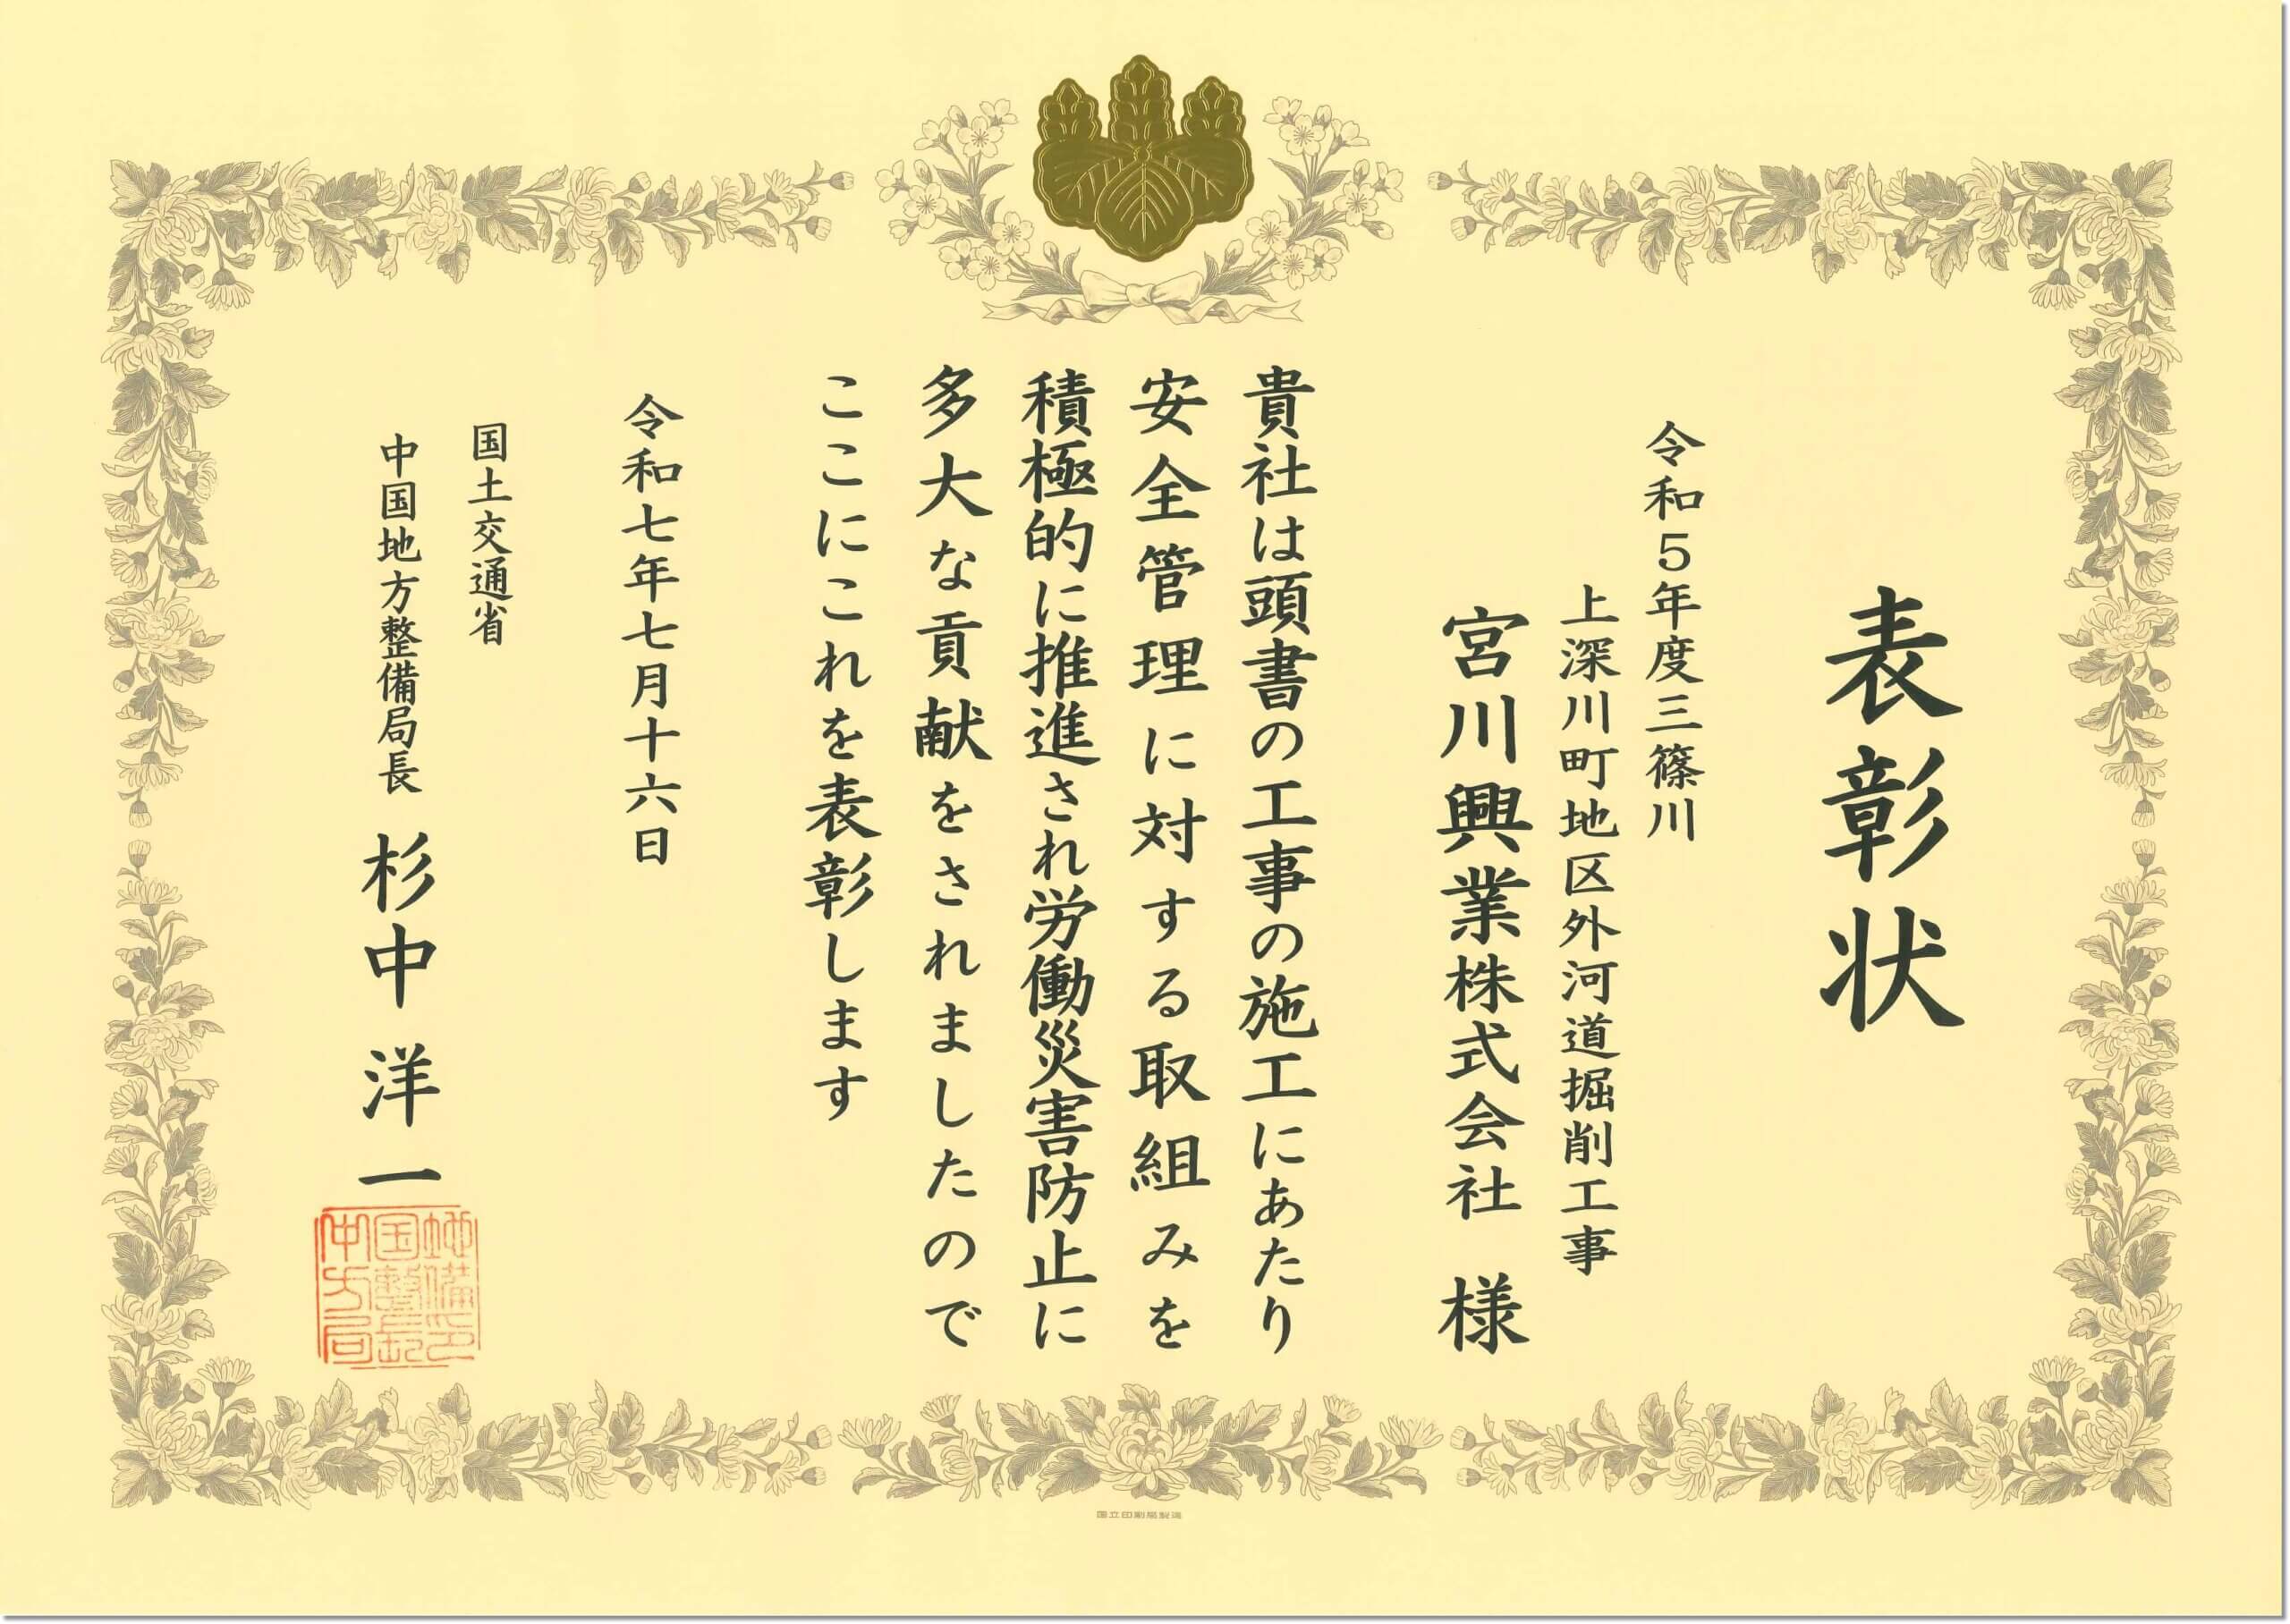 表彰状
令和５年度三篠川
上深川町地区外河道掘削工事
宮川興業株式会社　様
貴社は頭書の工事の施工にあたり
安全管理に対する取組みを
積極的に推進され労働災害防止に
多大な貢献をされましたので
ここにこれを表彰します
令和七年七月十六日
国土交通省
中国地方整備局長　杉中洋一
地備印
国整長
中方局
国立印刷局製造